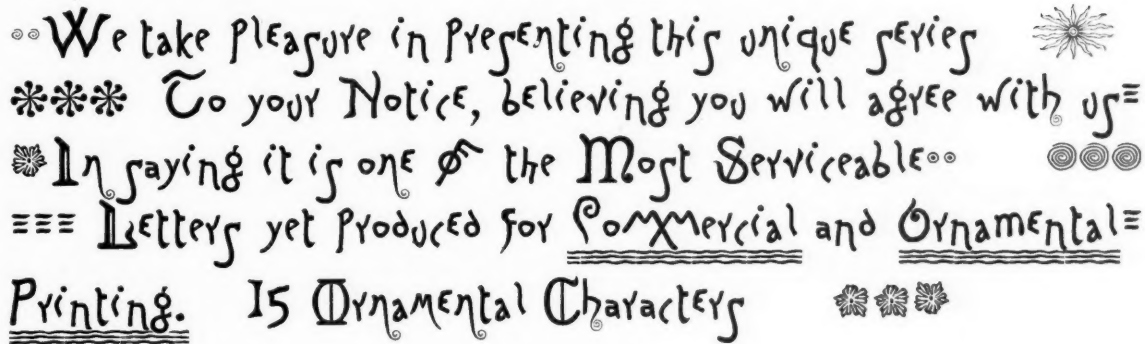 We take Pleasure in Presenting this unique series
To your Notice, believing you will agree with us
In saying it is one of the Most Serviceable
Letters yet Produced for Commercial and Ornamental
Printing. 15 Ornamental Characters